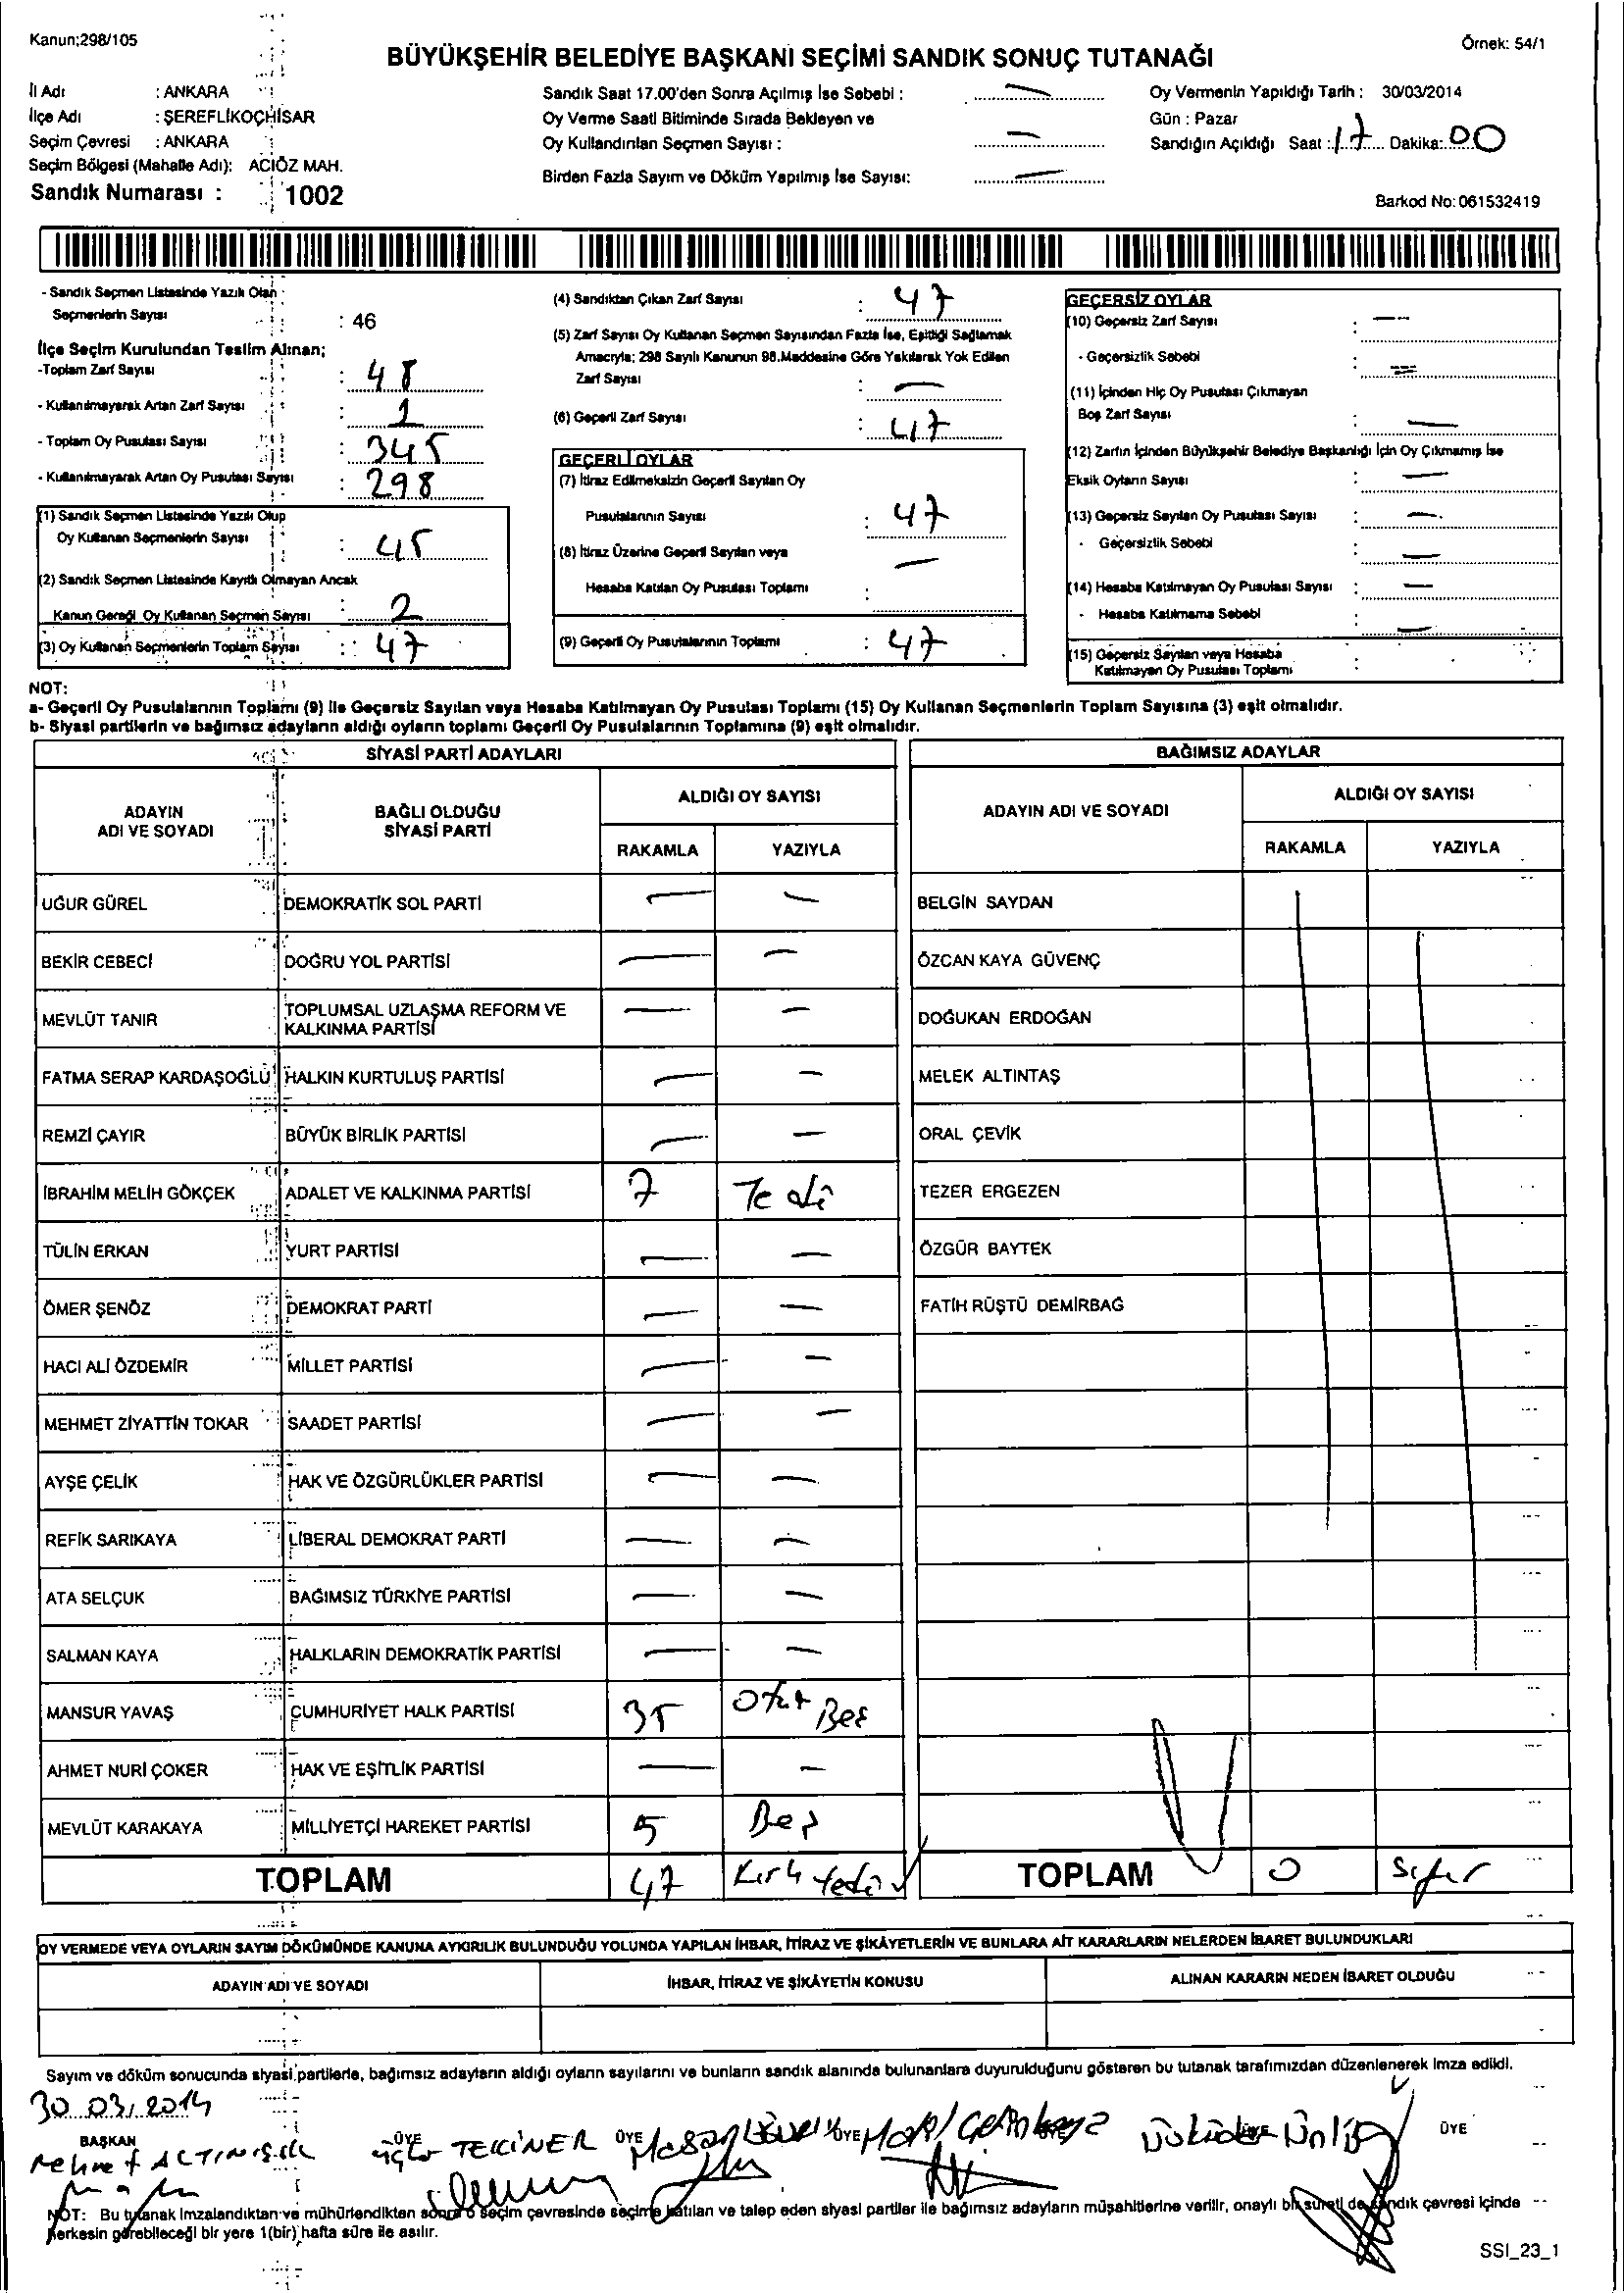 Kanun;298/105
Örnek: 54/1
BÜYÜKŞEHİR BELEDİYE BAŞKANI SEÇİMİ SANDIK SONUÇ TUTANAĞI
İl Adı : ANKARA
İlçe Adı : ŞEREFLİKOÇHİSAR
Seçim Çevresi : ANKARA
Seçim Bölgesi (Mahalle Adı): ACIÖZ MAH.
Sandık Numarası : 1002
Sandık Saat 17.00'den Sonra Açılmış İse Sebebi : —
Oy Verme Saati Bitiminde Sırada Bekleyen ve
Oy Kullandırılan Seçmen Sayısı : —
Birden Fazla Sayım ve Döküm Yapılmış İse Sayısı: —
Oy Vermenin Yapıldığı Tarih : 30/03/2014
Gün : Pazar
Sandığın Açıldığı Saat : 17 Dakika: 00
Barkod No: 061532419
- Sandık Seçmen Listesinde Yazılı Olan
Seçmenlerin Sayısı : 46
İlçe Seçim Kurulundan Teslim Alınan;
-Toplam Zarf Sayısı : 48
- Kullanılmayarak Artan Zarf Sayısı : 1
- Toplam Oy Pusulası Sayısı : 345
- Kullanılmayarak Artan Oy Pusulası Sayısı : 298
(1) Sandık Seçmen Listesinde Yazılı Olup
Oy Kullanan Seçmenlerin Sayısı : 45
(2) Sandık Seçmen Listesinde Kayıtlı Olmayan Ancak
Kanun Gereği Oy Kullanan Seçmen Sayısı : 2
(3) Oy Kullanan Seçmenlerin Toplam Sayısı : 47
(4) Sandıktan Çıkan Zarf Sayısı : 47
(5) Zarf Sayısı Oy Kullanan Seçmen Sayısından Fazla İse, Eşitliği Sağlamak
Amacıyla; 298 Sayılı Kanunun 98.Maddesine Göre Yakılarak Yok Edilen
Zarf Sayısı : —
(6) Geçerli Zarf Sayısı : 47
GEÇERLİ OYLAR
(7) İtiraz Edilmeksizin Geçerli Sayılan Oy
Pusulalarının Sayısı : 47
(8) İtiraz Üzerine Geçerli Sayılan veya
Hesaba Katılan Oy Pusulası Toplamı : —
(9) Geçerli Oy Pusulalarının Toplamı : 47
GEÇERSİZ OYLAR
(10) Geçersiz Zarf Sayısı : —
- Geçersizlik Sebebi : —
(11) İçinden Hiç Oy Pusulası Çıkmayan
Boş Zarf Sayısı : —
(12) Zarfın İçinden Büyükşehir Belediye Başkanlığı İçin Oy Çıkmamış İse
Eksik Oyların Sayısı : —
(13) Geçersiz Sayılan Oy Pusulası Sayısı : —
- Geçersizlik Sebebi : —
(14) Hesaba Katılmayan Oy Pusulası Sayısı : —
- Hesaba Katılmama Sebebi : —
(15) Geçersiz Sayılan veya Hesaba
Katılmayan Oy Pusulası Toplamı :
NOT:
a- Geçerli Oy Pusulalarının Toplamı (9) ile Geçersiz Sayılan veya Hesaba Katılmayan Oy Pusulası Toplamı (15) Oy Kullanan Seçmenlerin Toplam Sayısına (3) eşit olmalıdır.
b- Siyasi partilerin ve bağımsız adayların aldığı oyların toplamı Geçerli Oy Pusulalarının Toplamına (9) eşit olmalıdır.
SİYASİ PARTİ ADAYLARI
ADAYIN ADI VE SOYADI BAĞLI OLDUĞU SİYASİ PARTİ ALDIĞI OY SAYISI
RAKAMLA YAZIYLA
UĞUR GÜREL DEMOKRATİK SOL PARTİ — —
BEKİR CEBECİ DOĞRU YOL PARTİSİ — —
MEVLÜT TANIR TOPLUMSAL UZLAŞMA REFORM VE KALKINMA PARTİSİ — —
FATMA SERAP KARDAŞOĞLU HALKIN KURTULUŞ PARTİSİ — —
REMZİ ÇAYIR BÜYÜK BİRLİK PARTİSİ — —
İBRAHİM MELİH GÖKÇEK ADALET VE KALKINMA PARTİSİ 7 Yedi
TÜLİN ERKAN YURT PARTİSİ — —
ÖMER ŞENÖZ DEMOKRAT PARTİ — —
HACI ALİ ÖZDEMİR MİLLET PARTİSİ — —
MEHMET ZİYATTİN TOKAR SAADET PARTİSİ — —
AYŞE ÇELİK HAK VE ÖZGÜRLÜKLER PARTİSİ — —
REFİK SARIKAYA LİBERAL DEMOKRAT PARTİ — —
ATA SELÇUK BAĞIMSIZ TÜRKİYE PARTİSİ — —
SALMAN KAYA HALKLARIN DEMOKRATİK PARTİSİ — —
MANSUR YAVAŞ CUMHURİYET HALK PARTİSİ 35 Otuz Beş
AHMET NURİ ÇOKER HAK VE EŞİTLİK PARTİSİ — —
MEVLÜT KARAKAYA MİLLİYETÇİ HAREKET PARTİSİ 5 Beş
TOPLAM 47 Kırk Yedi
BAĞIMSIZ ADAYLAR
ADAYIN ADI VE SOYADI ALDIĞI OY SAYISI
RAKAMLA YAZIYLA
BELGİN SAYDAN
ÖZCAN KAYA GÜVENÇ
DOĞUKAN ERDOĞAN
MELEK ALTINTAŞ
ORAL ÇEVİK
TEZER ERGEZEN
ÖZGÜR BAYTEK
FATİH RÜŞTÜ DEMİRBAĞ
TOPLAM 0 Sıfır
OY VERMEDE VEYA OYLARIN SAYIM DÖKÜMÜNDE KANUNA AYKIRILIK BULUNDUĞU YOLUNDA YAPILAN İHBAR, İTİRAZ VE ŞİKÂYETLERİN VE BUNLARA AİT KARARLARIN NELERDEN İBARET BULUNDUKLARI
ADAYIN ADI VE SOYADI İHBAR, İTİRAZ VE ŞİKÂYETİN KONUSU ALINAN KARARIN NEDEN İBARET OLDUĞU
Sayım ve döküm sonucunda siyasi partilerle, bağımsız adayların aldığı oyların sayılarını ve bunların sandık alanında bulunanlara duyurulduğunu gösteren bu tutanak tarafımızdan düzenlenerek imza edildi.
30.03.2014
BAŞKAN ÜYE ÜYE ÜYE ÜYE ÜYE
TEKİNER
NOT: Bu tutanak imzalandıktan ve mühürlendikten sonra o seçim çevresinde seçime katılan ve talep eden siyasi partiler ile bağımsız adayların müşahitlerine verilir, onaylı bir sureti de sandık çevresi içinde
herkesin görebileceği bir yere 1(bir) hafta süre ile asılır.
SSI_23_1